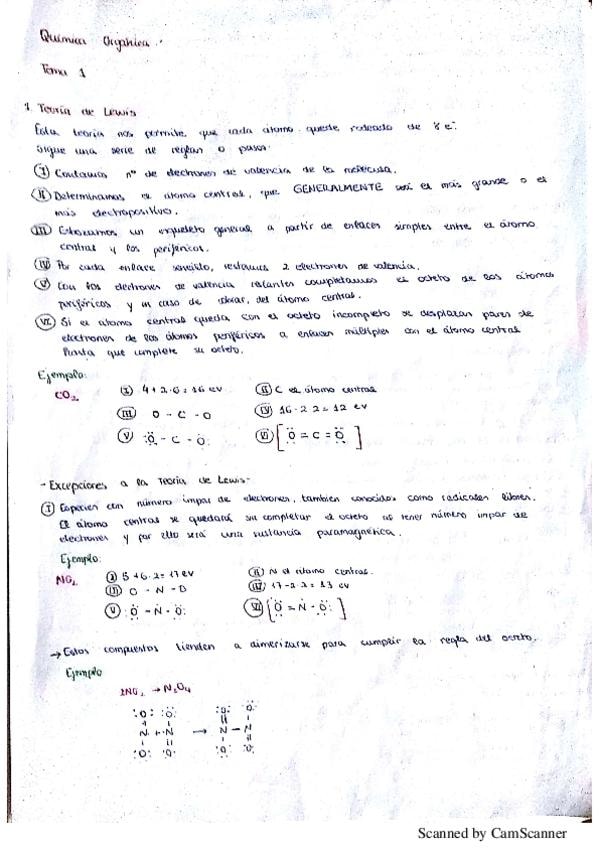 Química Orgánica.
Tema 1
1. Teoría de Lewis
Esta teoría nos permite que cada átomo quede rodeado de 8 e⁻.
Sigue una serie de reglas o pasos:
Ⓘ Contamos nº de electrones de valencia de la molécula.
Ⓘⓘ Determinamos el átomo central, que GENERALMENTE será el más grande o el
más electropositivo.
III Esbozamos un esqueleto general a partir de enlaces simples entre el átomo
central y los periféricos.
IV Por cada enlace sencillo, restamos 2 electrones de valencia.
V Con los electrones de valencia restantes completamos el octeto de los átomos
periféricos y en caso de sobrar, del átomo central.
VI Si el átomo central queda con el octeto incompleto se desplazan pares de
electrones de los átomos periféricos a enlaces múltiples con el átomo central
hasta que complete su octeto.
Ejemplo:
CO₂ I 4+2·6=16 ev II C es átomo central
III O - C - O IV 16-2·2=12 ev
V :Ö - C - Ö: VI [Ö = C = Ö]
- Excepciones a la Teoría de Lewis-
I Especies con número impar de electrones, también conocidos como radicales libres.
El átomo central se quedará sin completar el octeto al tener número impar de
electrones y por ello será una sustancia paramagnética.
Ejemplo:
NO₂ I 5+6·2=17 ev II N es átomo central.
III O - N - O IV 17-2·2=13 ev
V :Ö - N - Ö: VI [Ö = N - Ö:]
→ Estos compuestos tienden a dimerizarse para cumplir la regla del octeto.
Ejemplo
2NO₂ → N₂O₄
:O: :O: :O: :O:
N + ·N → N - N
:O: :O: :O: :O:
Scanned by CamScanner